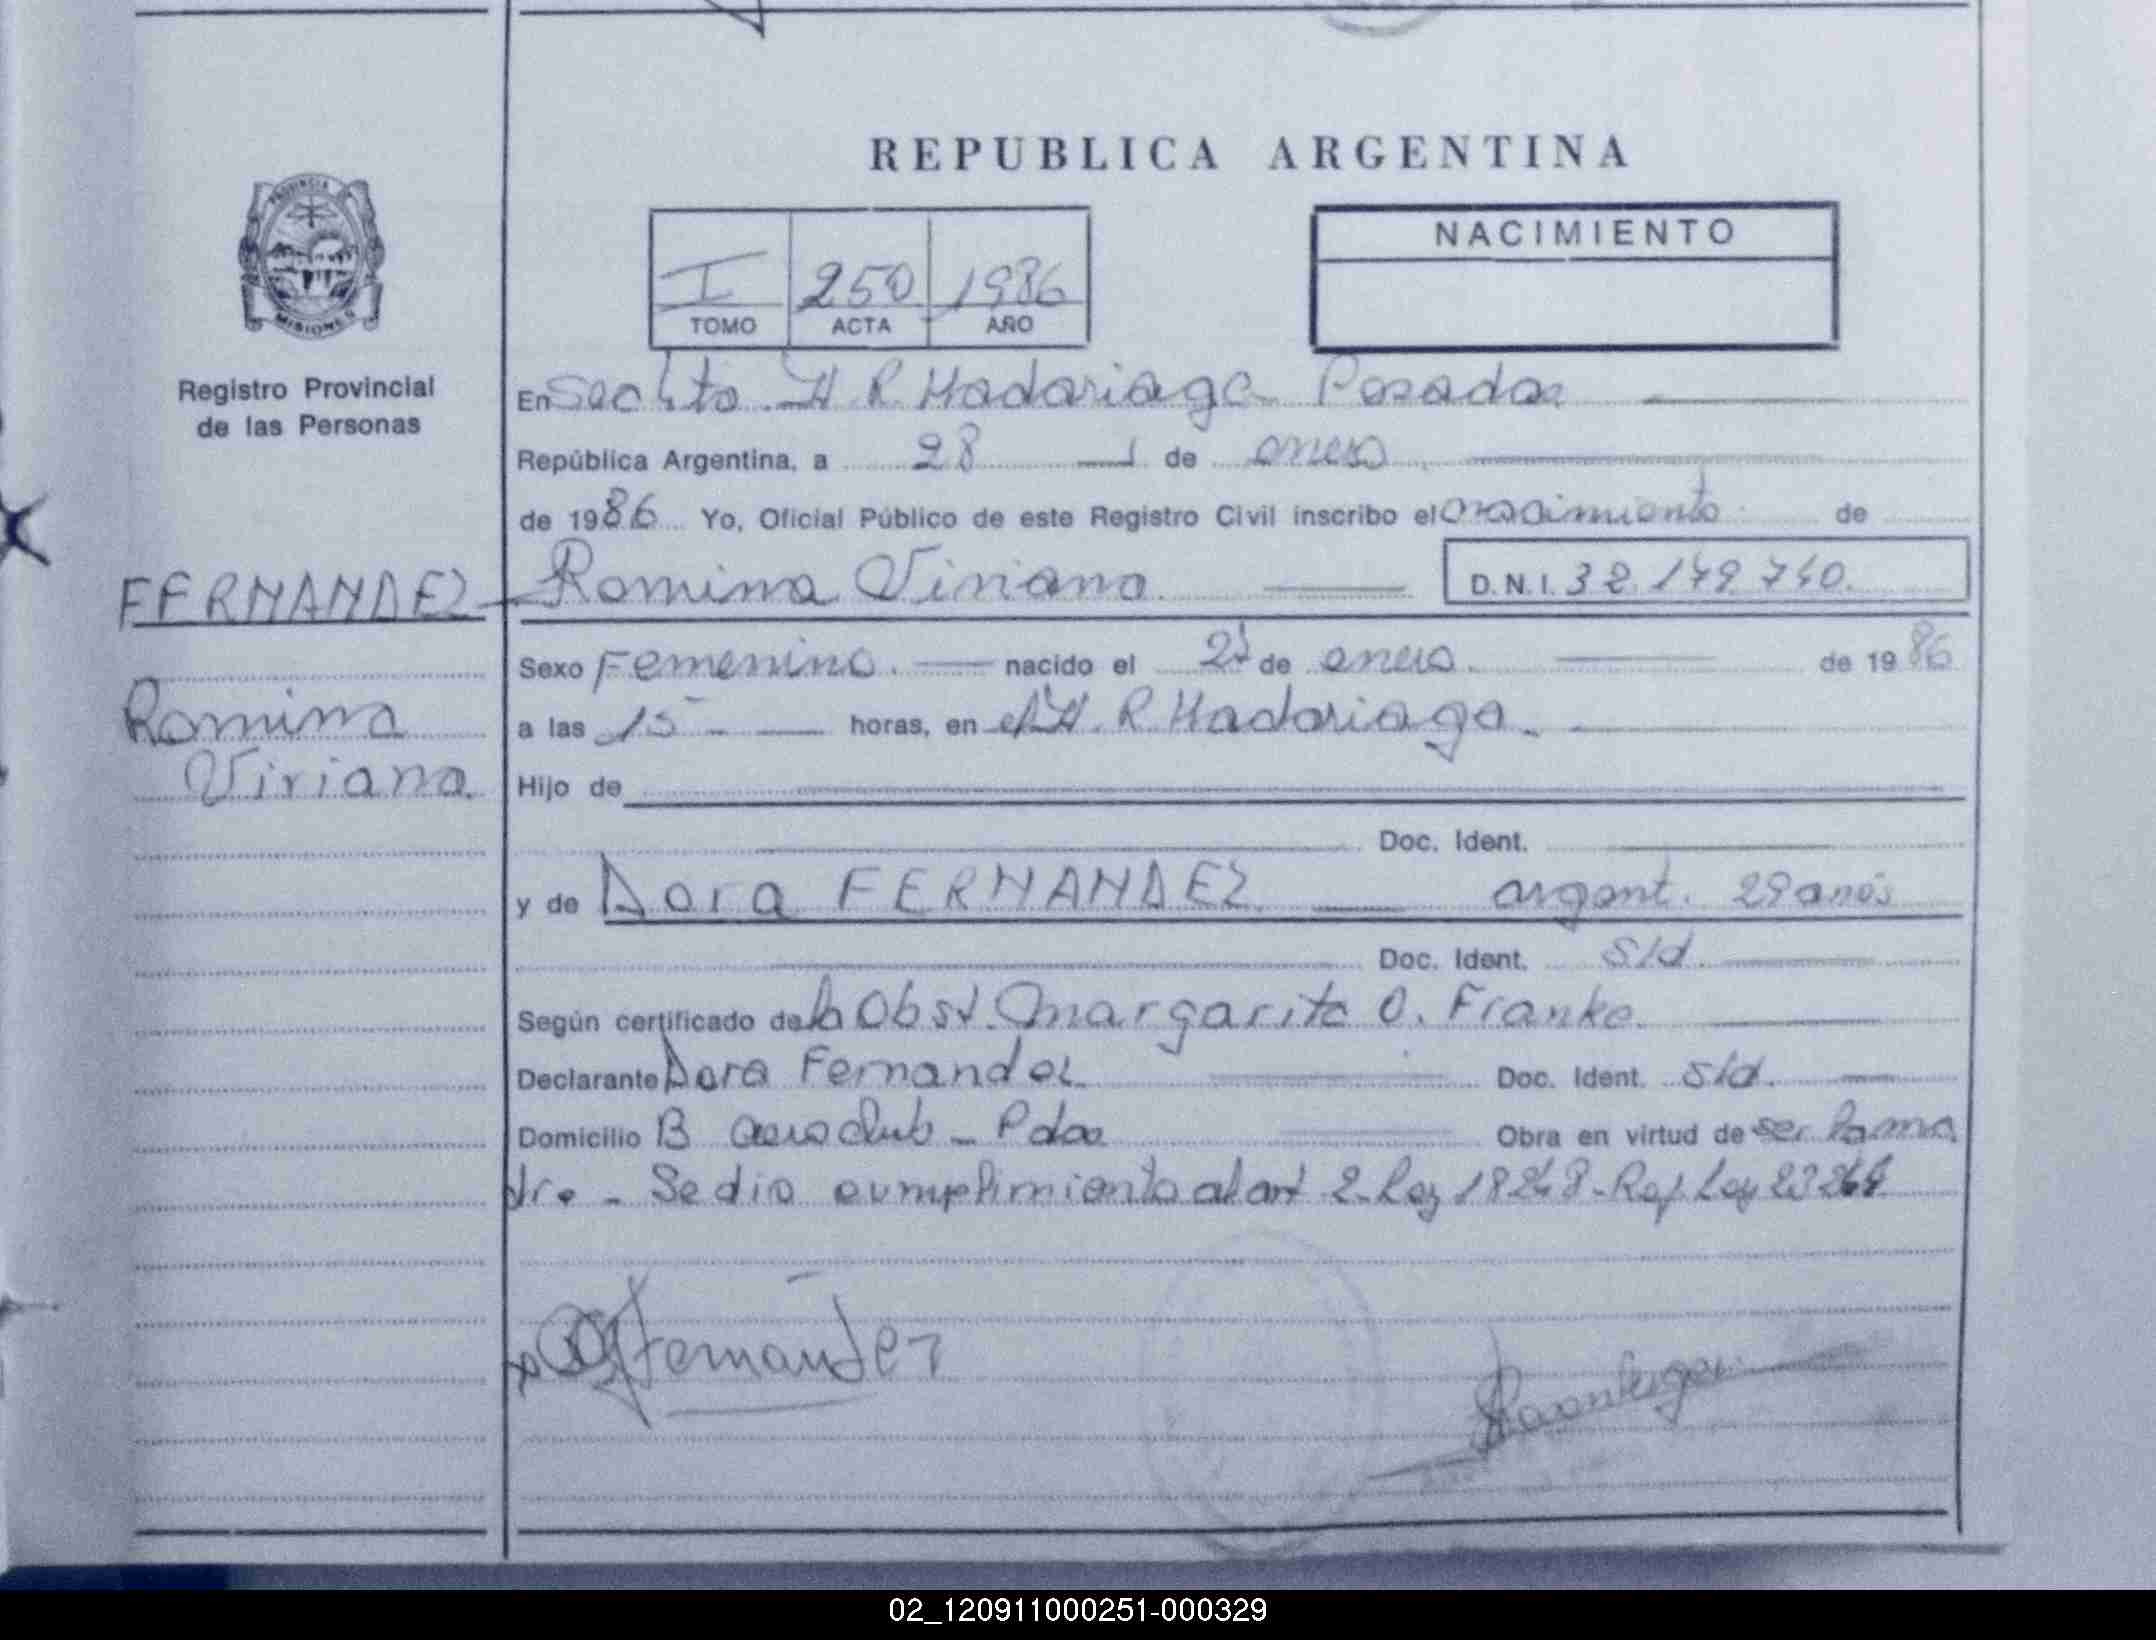 REPUBLICA ARGENTINA
PROVINCIA
MISIONES
Registro Provincial
de las Personas
NACIMIENTO
I 250 1986
TOMO ACTA AÑO
En Sec Hto. H. R. Madariaga Posadas
República Argentina, a 28 de enero
de 1986 Yo, Oficial Público de este Registro Civil inscribo el nacimiento de
FERNANDEZ Romina Viviana D.N.I. 32.179.740.
Romina
Viviana
Sexo Femenino. nacido el 27 de enero. de 1986
a las 15 horas, en el H. R. Madariaga.
Hijo de
Doc. Ident.
y de Dora FERNANDEZ argent. 29 años
Doc. Ident. s/d
Según certificado de la Obst. Margarita O. Franke.
Declarante Dora Fernandez Doc. Ident. s/d.
Domicilio B Aeroclub - Pdas Obra en virtud de ser la ma
dre. - Se dio cumplimiento al art 2. Ley 18248 - Ref Ley 23264
Fernandez
02_120911000251-000329